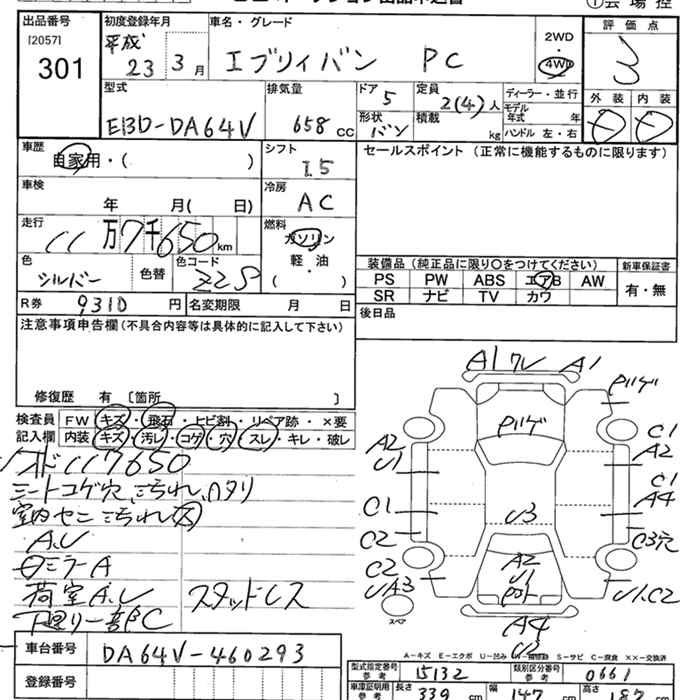 出品番号 初度登録年月 車名・グレード 評価点
[2057] 平成 2WD
301 23 3月 エブリィバン PC 4WD 3
型式 排気量 ドア 定員 ディーラー・並行 外装 内装
5 2(4)人 モデル年式 年
EBD-DA64V 658cc 形状 バン 積載 kg ハンドル 左・右
車歴 シフト セールスポイント (正常に機能するものに限ります)
自家用・( ) I5
車検 冷房
年 月( 日) AC
走行 燃料
11万7千650km ガソリン
色 色替 色コード 軽・油 装備品 (純正品に限り○をつけてください) 新車保証書
シルバー Z2S ( ) PS PW ABS エアB AW 有・無
R券 9310円 名変期限 月 日 SR ナビ TV カワ
注意事項申告欄(不具合内容等は具体的に記入して下さい) 後日品
修復歴 有 [箇所 ]
検査員 FW キズ・飛石・ヒビ割・リペア跡・×要
記入欄 内装 キズ・汚レ・コゲ・穴・スレ・キレ・破レ
117650
シートコゲ穴、汚れ、
A.U
ミラーA
荷室A.U スタッドレス
下廻り一部C
車台番号 DA64V-460293
登録番号
A1 A1
Pハゲ
Pハゲ
A2 C1
U1 A2
C1
C1 U3 A4
C2 C3穴
C2 A2
UA3 U1 U1.C2
スペア
A4
U3
A-キズ E-エクボ U-凹み S-サビ C-腐食 ××-交換済
型式指定番号 参考 15132 類別区分番号 参考 0661
車庫証明用 参考 長さ 339cm 幅 147cm 高さ 187cm